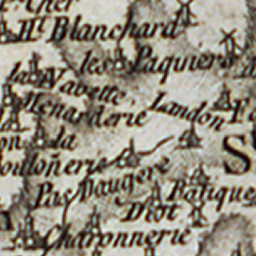 Ht. Blanchard
les Paquiers
la Nabette
Menarderie
Landon
la
ouloñerie
Pas Daugere
Patique
Diot
Charonnerie